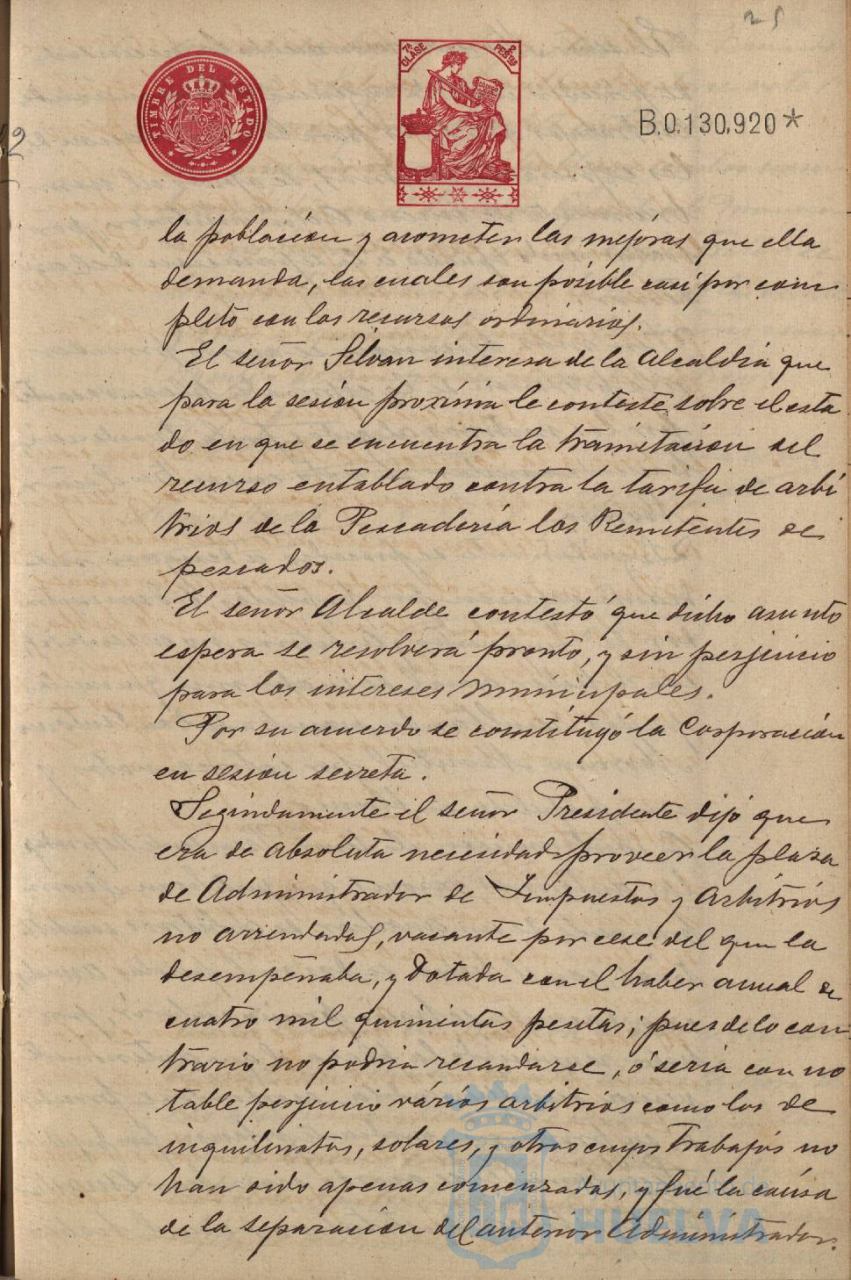 25
TIMBRE DEL ESTADO
7ª CLASE
2 PESETAS
B.0.130.920*
la población y acometer las mejoras que ella
demanda, las cuales son posible casi por com
pleto con los recursos ordinarios.
El señor Silvan interesa de la Alcaldia que
para la sesión proxima le conteste sobre el esta
do en que se encuentra la tramitacion del
recurso entablado contra la tarifa de arbi
trios de la Pescaderia los Remitentes de
pescados.
El señor Alcalde contestó que dicho asunto
espera se resolverá pronto, y sin perjuicio
para los intereses municipales.
Por su acuerdo se constituyó la Corporación
en sesion secreta.
Segindamente el señor Presidente dijo que
era de absoluta necesidad proveer la plaza
de Administrador de Impuestos y Arbitrios
no arrendados, vacante por cese del que la
desempeñaba, y dotada con el haber anual de
cuatro mil quinientas pesetas; pues de lo con
trario no podria recaudarse, ó seria con no
table perjuicio vários arbitrios como los de
inquilinatos, solares, y otros cuyos trabajos no
han sido apenas comenzados, y fué la causa
de la separación del anterior Administrador.
HUELVA